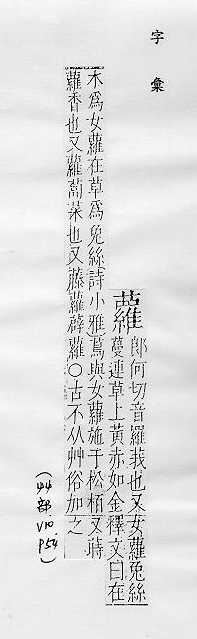 字彙
蘿
郎何切音羅莪也又女蘿兔絲
蔓連草上黃赤如金釋文曰在
木爲女蘿在草爲兔絲詩小雅蔦與女蘿施于松栢又蒔
蘿香也又蘿蔔菜也又藤蘿薜蘿○古不从艸俗加之
(艸部 V10 P54)